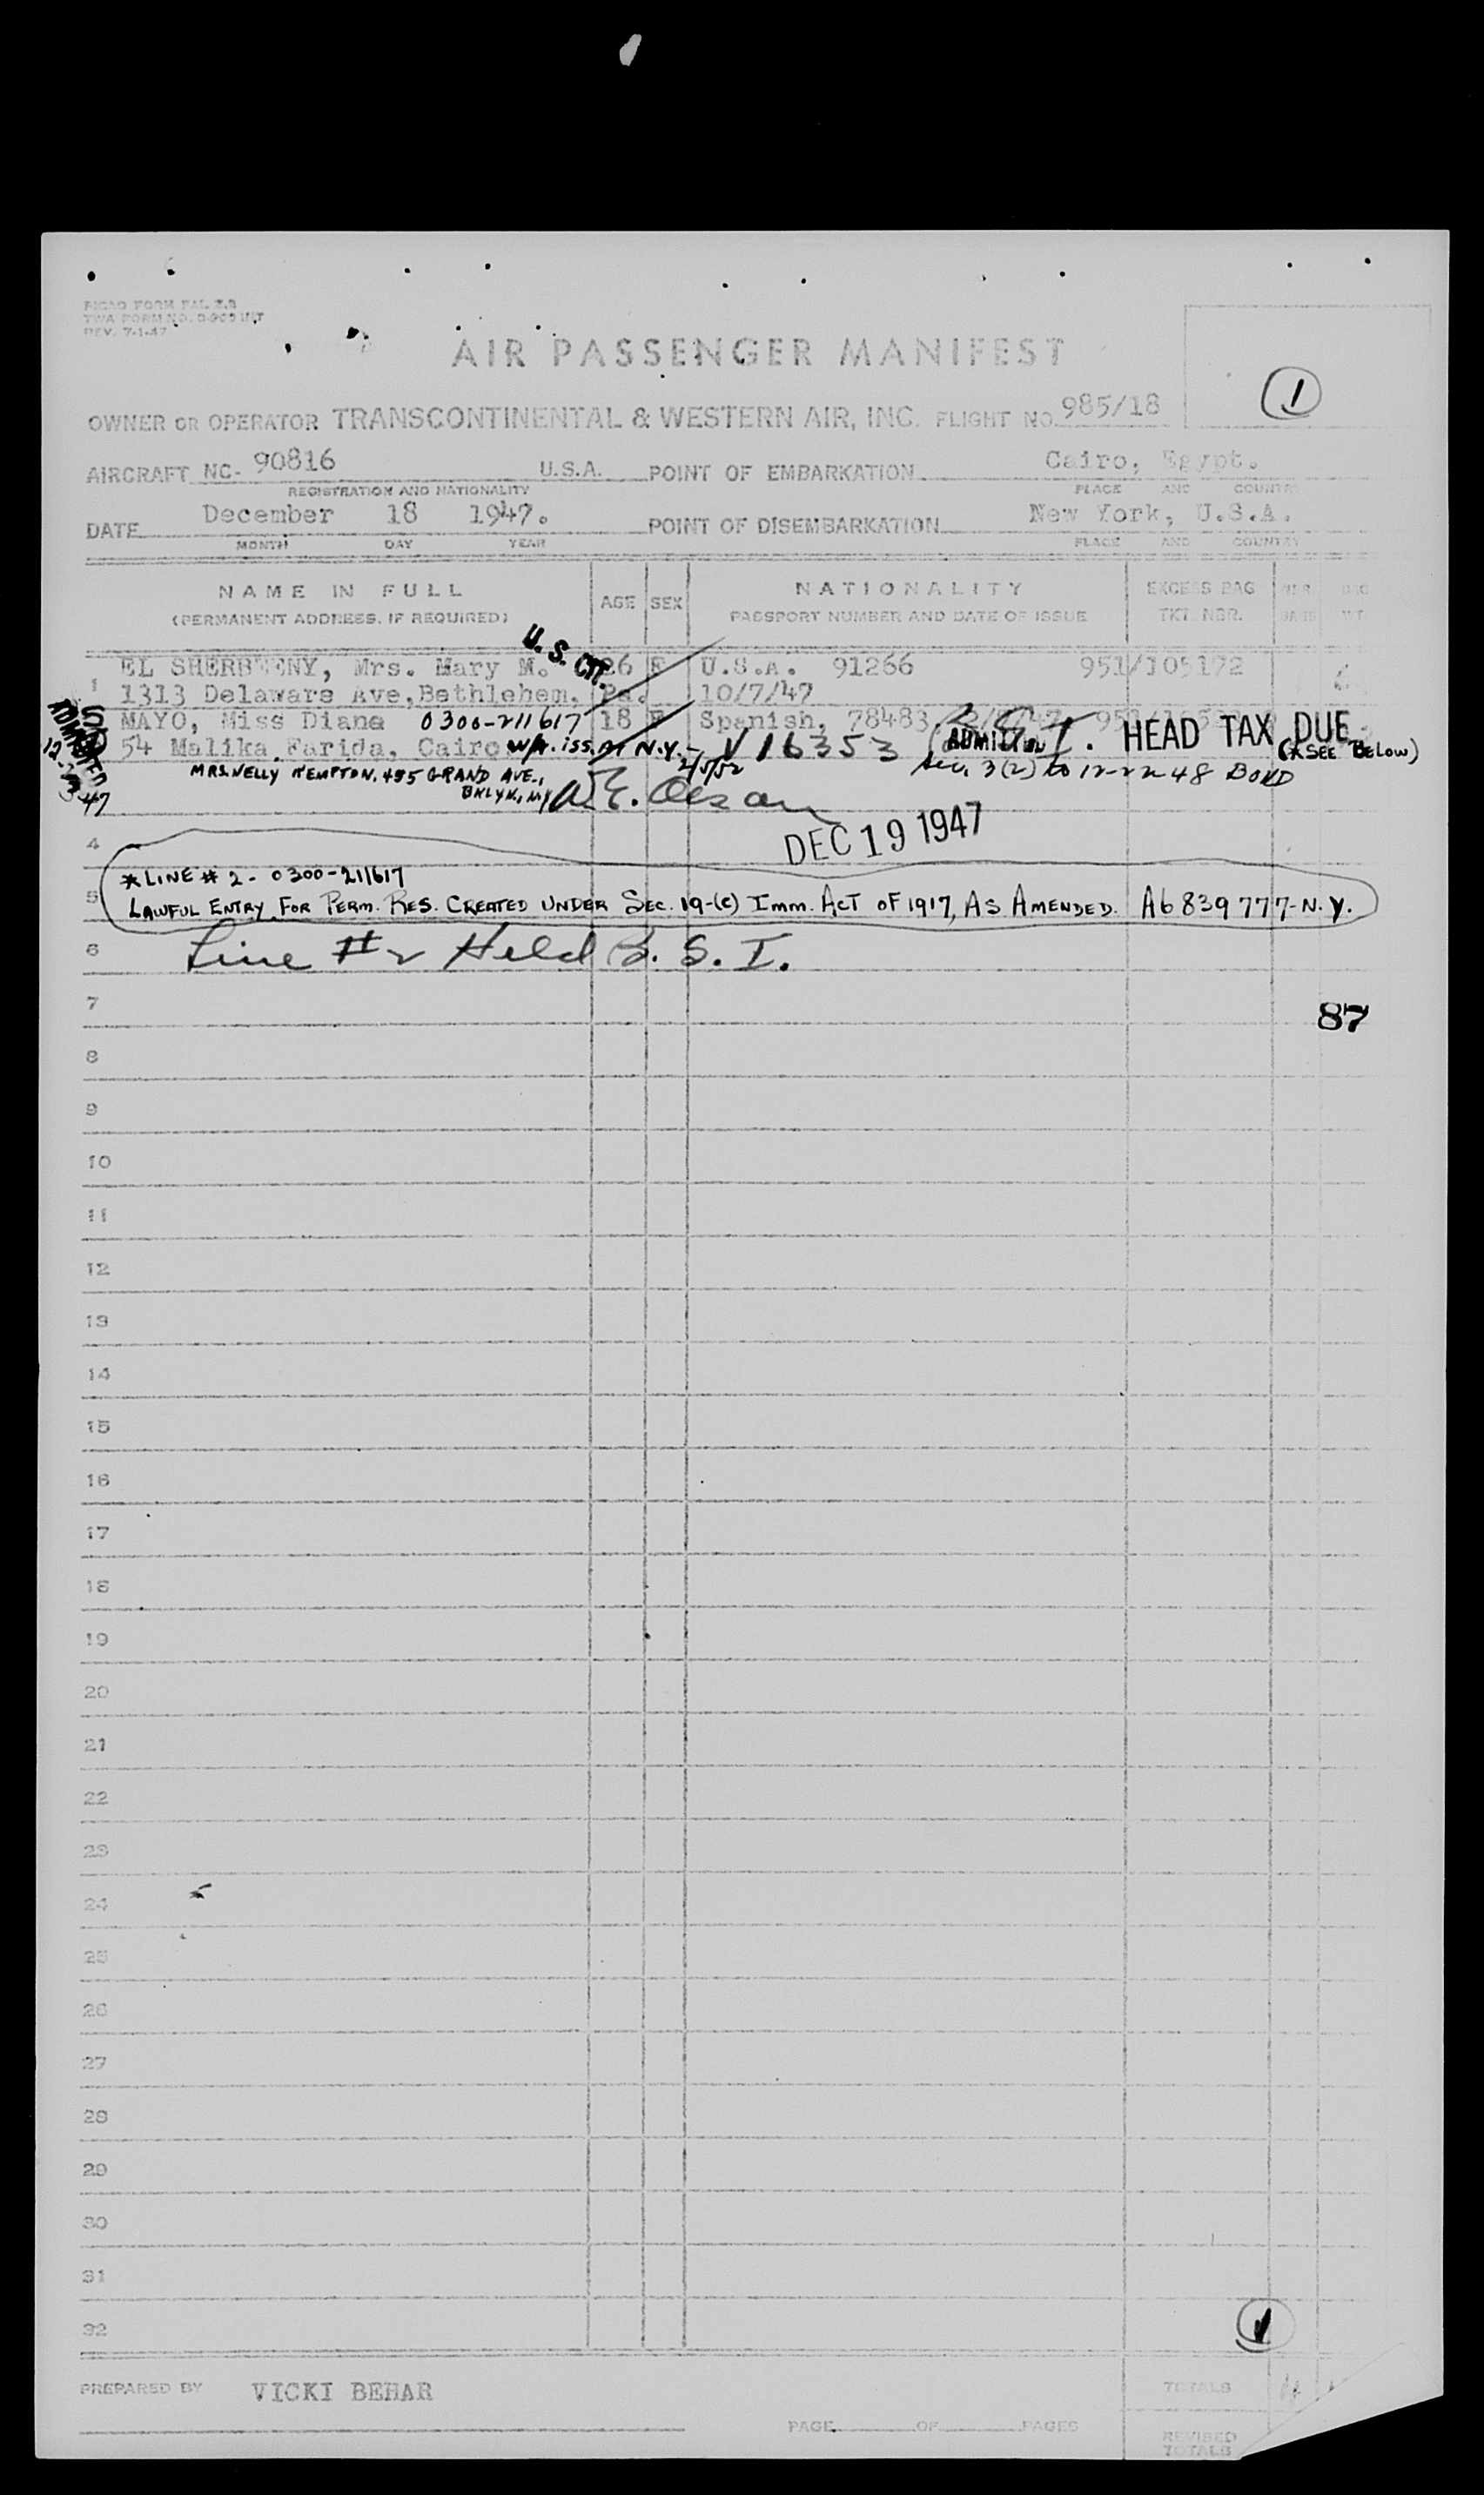 PICAO FORM FAL 2.3
TWA FORM NO. 0-905 INT
REV. 7-1-47
AIR PASSENGER MANIFEST
1
OWNER OR OPERATOR TRANSCONTINENTAL & WESTERN AIR, INC. FLIGHT NO. 985/18
AIRCRAFT NC- 90816 U.S.A. POINT OF EMBARKATION Cairo, Egypt.
REGISTRATION AND NATIONALITY PLACE AND COUNTRY
DATE December 18 1947. POINT OF DISEMBARKATION New York, U.S.A.
MONTH DAY YEAR PLACE AND COUNTRY
NAME IN FULL AGE SEX NATIONALITY EXCESS BAG
(PERMANENT ADDRESS, IF REQUIRED) PASSPORT NUMBER AND DATE OF ISSUE TKT. NBR.
U. S. CIT.
EL SHERBEENY, Mrs. Mary M. 26 F U.S.A. 91266 951/105172
1 1313 Delaware Ave, Bethlehem, Pa. 10/7/47
MAYO, Miss Diana 0300-211617 18 F Spanish, 78483 B. S. I. HEAD TAX DUE
54 Malika Farida, Cairo W/A. iss. at N.Y.- 2/5/52 V 16353 ADMITTED (*SEE BELOW)
ADMITTED 12-23-47
Sec. 3(2) to 12-22-48 BOND
MRS. NELLY KEMPTON, 455 GRAND AVE.,
BKLYN, NY
A. E. Olson
DEC 19 1947
4
*LINE # 2 - 0300-211617
5 LAWFUL ENTRY FOR PERM. RES. CREATED UNDER SEC. 19-(c) IMM. ACT OF 1917, AS AMENDED. A6 839 777-N.Y.
6 Line #2 Held B. S. I.
7
87
8
9
10
11
12
13
14
15
16
17
18
19
20
21
22
23
24
25
26
27
28
29
30
31
32
PREPARED BY VICKI BEHAR TOTALS
PAGE OF PAGES
REVISED
TOTALS